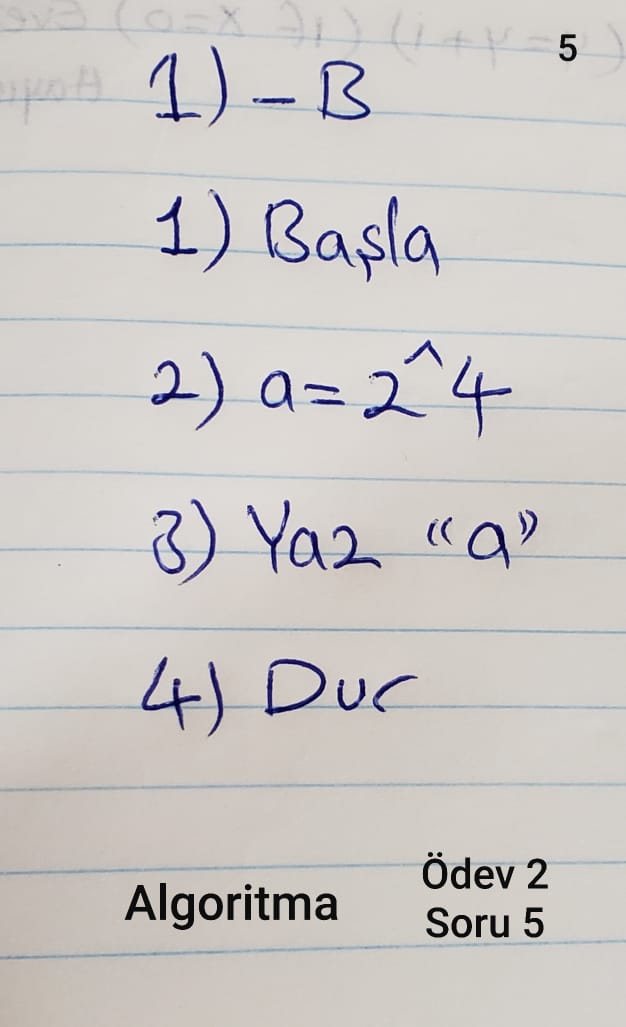 5
1) - B
1) Başla
2) a = 2^4
3) Yaz "a"
4) Dur
Algoritma
Ödev 2
Soru 5